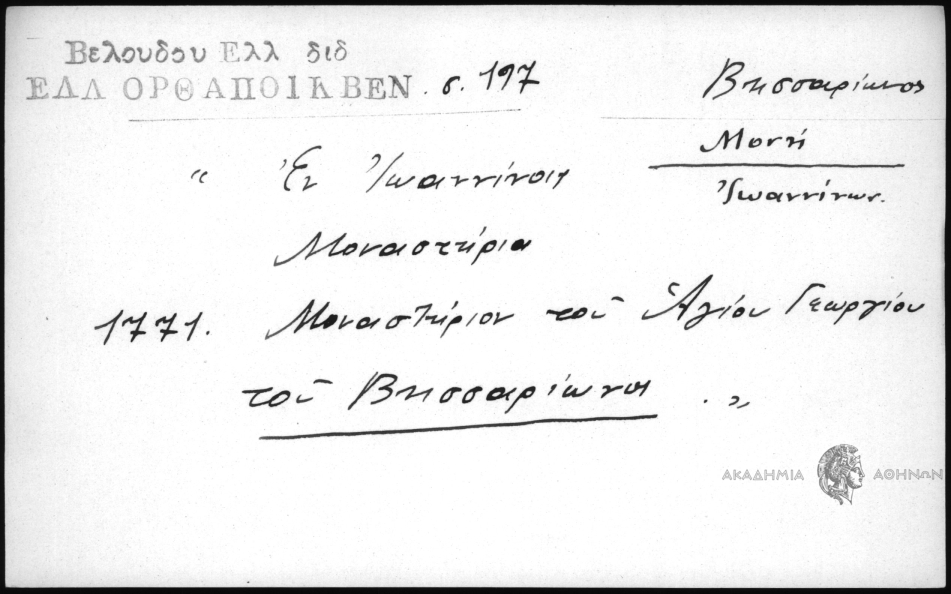 Βελουδου Ελλ διδ
ΕΛΛ ΟΡΘ ΑΠΟΙΚ ΒΕΝ . σ. 197
Βησσαρίωνος
Μονή
Ἰωαννίνων.
“ Ἐν Ἰωαννίνοις
Μοναστήρια
1771. Μοναστήριον τοῦ Ἁγίου Γεωργίου
τοῦ Βησσαρίωνος . „
ΑΚΑΔΗΜΙΑ ΑΘΗΝΩΝ